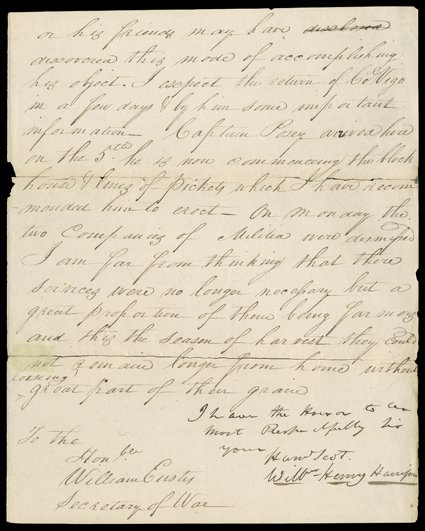 or his friends may have disclosed
discovered this mode of accomplishing
his object. I expect the return of Co Vigo
in a few days & by him some important
information — Captain Posey arived here
on the 5th he is now commencing the block
house & lines of Pickets which I have recom
mended him to erect — On monday the
two Companies of Militia were dismissed
I am far from thinking that there
services were no longer necessary but a
great proportion of them being farmers
and this the season of harvest they could
not remain longer from home without
loosing
great part of their grain
I have the Honor to be
most Respectfully Sir
your
Humb Servt.
Willm Henry Harrison
To the
Honble
William Eustis
Secretary of War